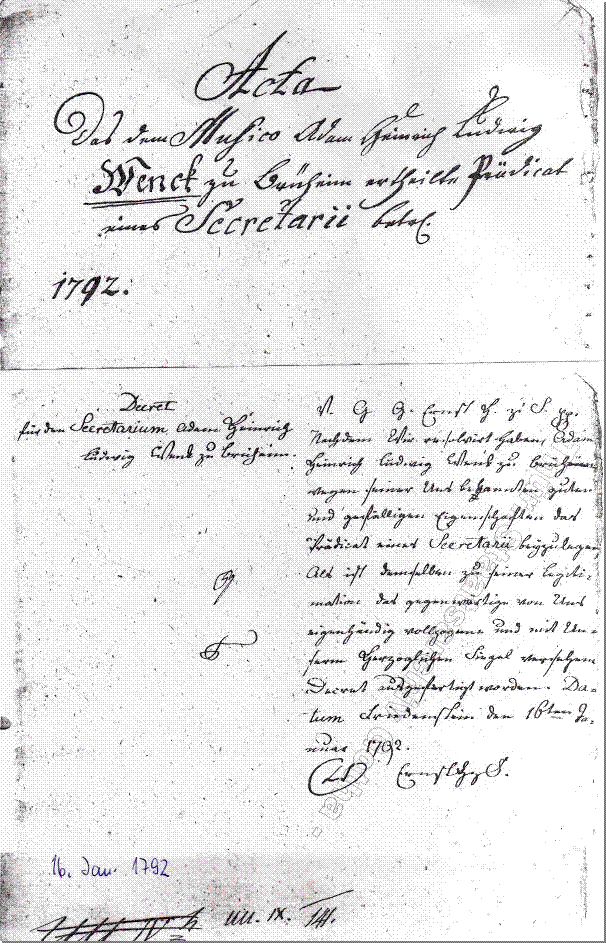 Acta
Das dem Musico Adam Heinrich Ludwig
Wenck zu Brüheim ertheilte Prädicat
eines Secretarii betr.
1792.
Decret
für den Secretarium Adam Heinrich
Ludwig Wenk zu Brüheim.
V. G. G. Ernst H. z. S. pp.
Nachdem Wir resolvirt haben, Adam
Heinrich Ludwig Wenk zu Brüheim
wegen seiner Uns bekannten guten
und gefälligen Eigenschaften das
Prädicat eines Secretarii beyzulegen,
Als ist demselben zu seiner Legiti-
mation das gegenwärtige von Uns
eigenhändig vollzogene und mit Un-
serm Herzoglichen Siegel versehene
Decret ausgefertigt worden. Da-
tum Friedenstein den 16ten Ja-
nuar 1792.
LS Ernst H z S.
16. Jan. 1792
UU. IX.